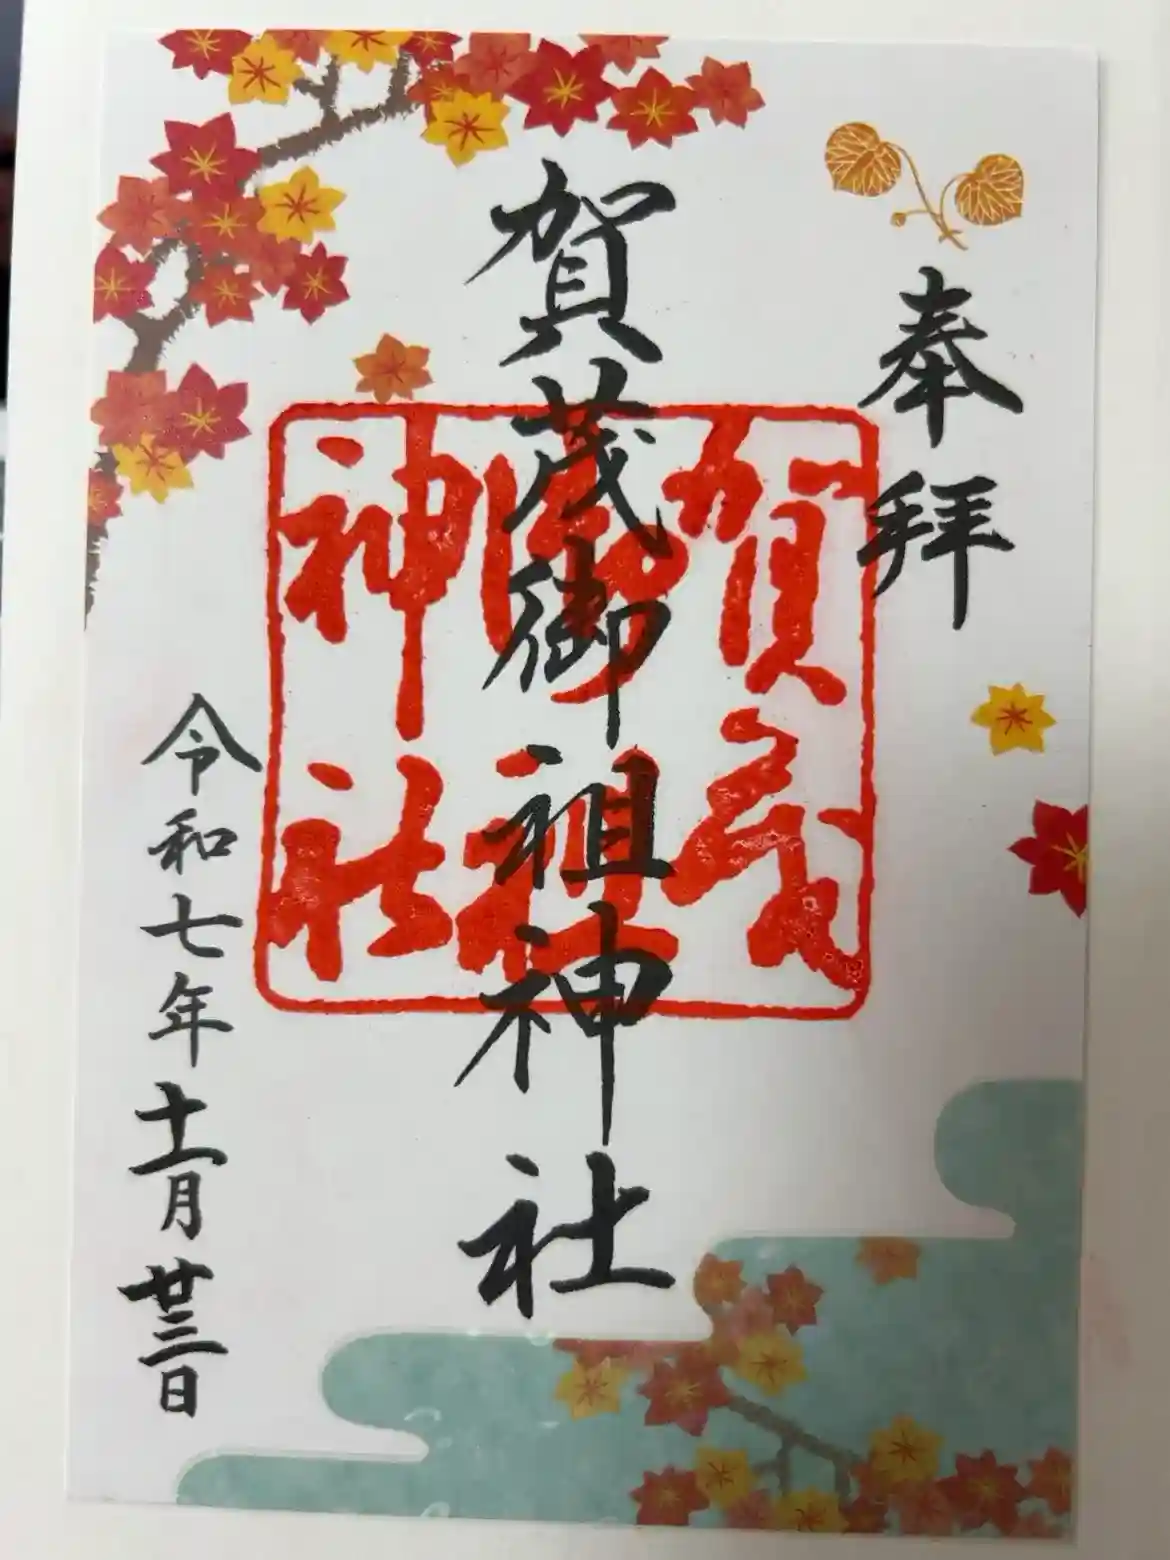 奉拝
賀茂御祖神社
賀茂
御祖
神社
令和七年十一月廿三日